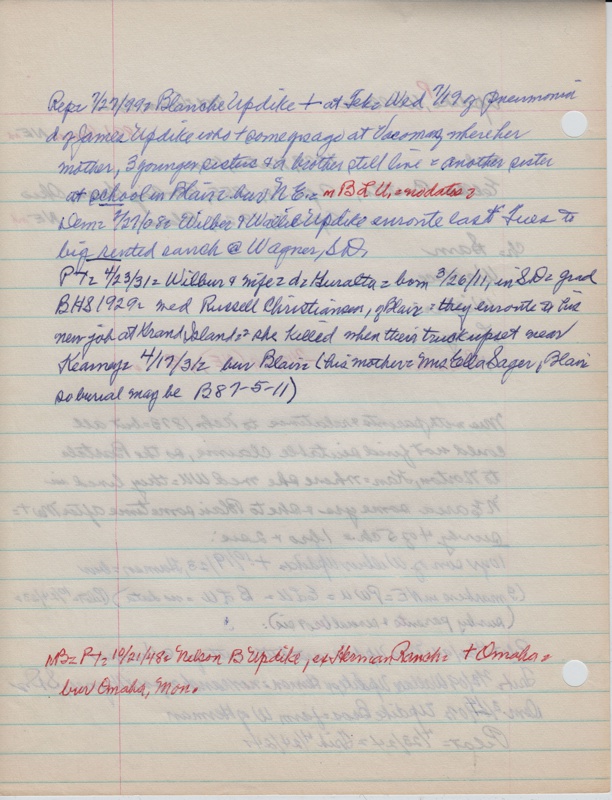 Rep= 7/27/99= Blanche Updike + at Tek= Wed 7/19 of pneumonia
d of James Updike who + some yrs ago at Vacoma, where her
mother, 3 younger sisters & a brother still live = another sister
at school in Blair= bur N.E.= m B L U, = no dates =
Dem= 2/27/08= Wilbur & Wallie Updike enroute last Tues to
big rented ranch @ Wagner, S.D.
PT= 4/23/31= Wilbur & wife= d= Huralta= born 3/26/11, in SD= grad
BHS 1929= med Russell Christiansen, of Blair = they enroute to his
new job at Grand Island= she killed when their truck upset near
Kearney= 4/17/31= bur Blair= (his mother= Mrs Ella Sager, Blair
so burial may be B87-5-11)
PT= 10/21/48= Nelson B Updike, ex Herman Ranch= + Omaha=
bur Omaha, Mon.